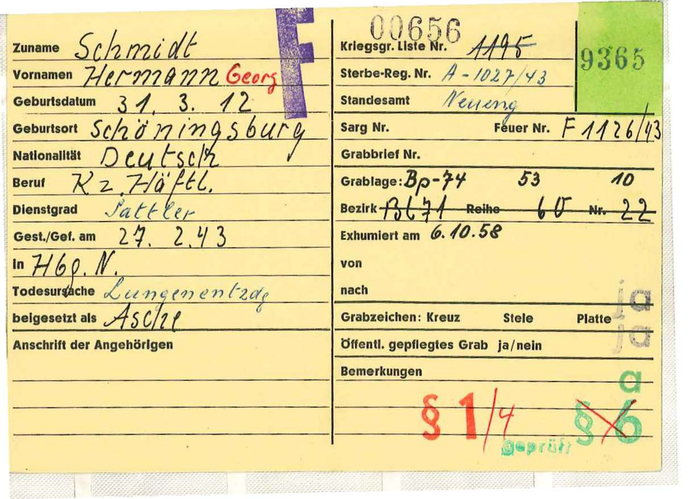 Zuname Schmidt
Vornamen Hermann Georg
Geburtsdatum 31. 3. 12
Geburtsort Schöningsburg
Nationalität Deutsch
Beruf Kz. Häftl.
Dienstgrad Sattler
Gest./Gef. am 27. 2.43
in Hbg. N.
Todesursache Lungenentzdg
beigesetzt als Asche
Anschrift der Angehörigen
F
00656
Kriegsgr. Liste Nr. 1195
9365
Sterbe-Reg. Nr. A-1027/43
Standesamt Neueng
Sarg Nr. Feuer Nr. F 1126/43
Grabbrief Nr.
Grablage: Bp-74 53 10
Bezirk Bl 71 Reihe 60 Nr. 22
Exhumiert am 6.10.58
von
nach
ja
Grabzeichen: Kreuz Stele Platte
ja
Öffentl. gepflegtes Grab ja/nein
Bemerkungen
a
§ 1/4 § 6
geprüft